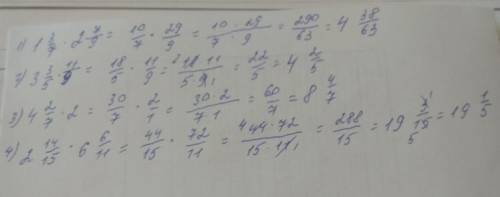 1) 1 3/7 · 2 2/9 = 10/7 · 29/9 = 10 · 29 / 7 · 9 = 290/63 = 4 38/63
2) 3 3/5 · 11/9 = 18/5 · 11/9 = 2 18 11 / 5 · 9 1 = 22/5 = 4 2/5
3) 4 2/7 · 2 = 30/7 · 2/1 = 30 · 2 / 7 · 1 = 60/7 = 8 4/7
4) 2 14/15 · 6 6/11 = 44/15 · 72/11 = 4 44 · 72 / 15 · 11 1 = 288/15 = 19 3 1/15 5 = 19 1/5